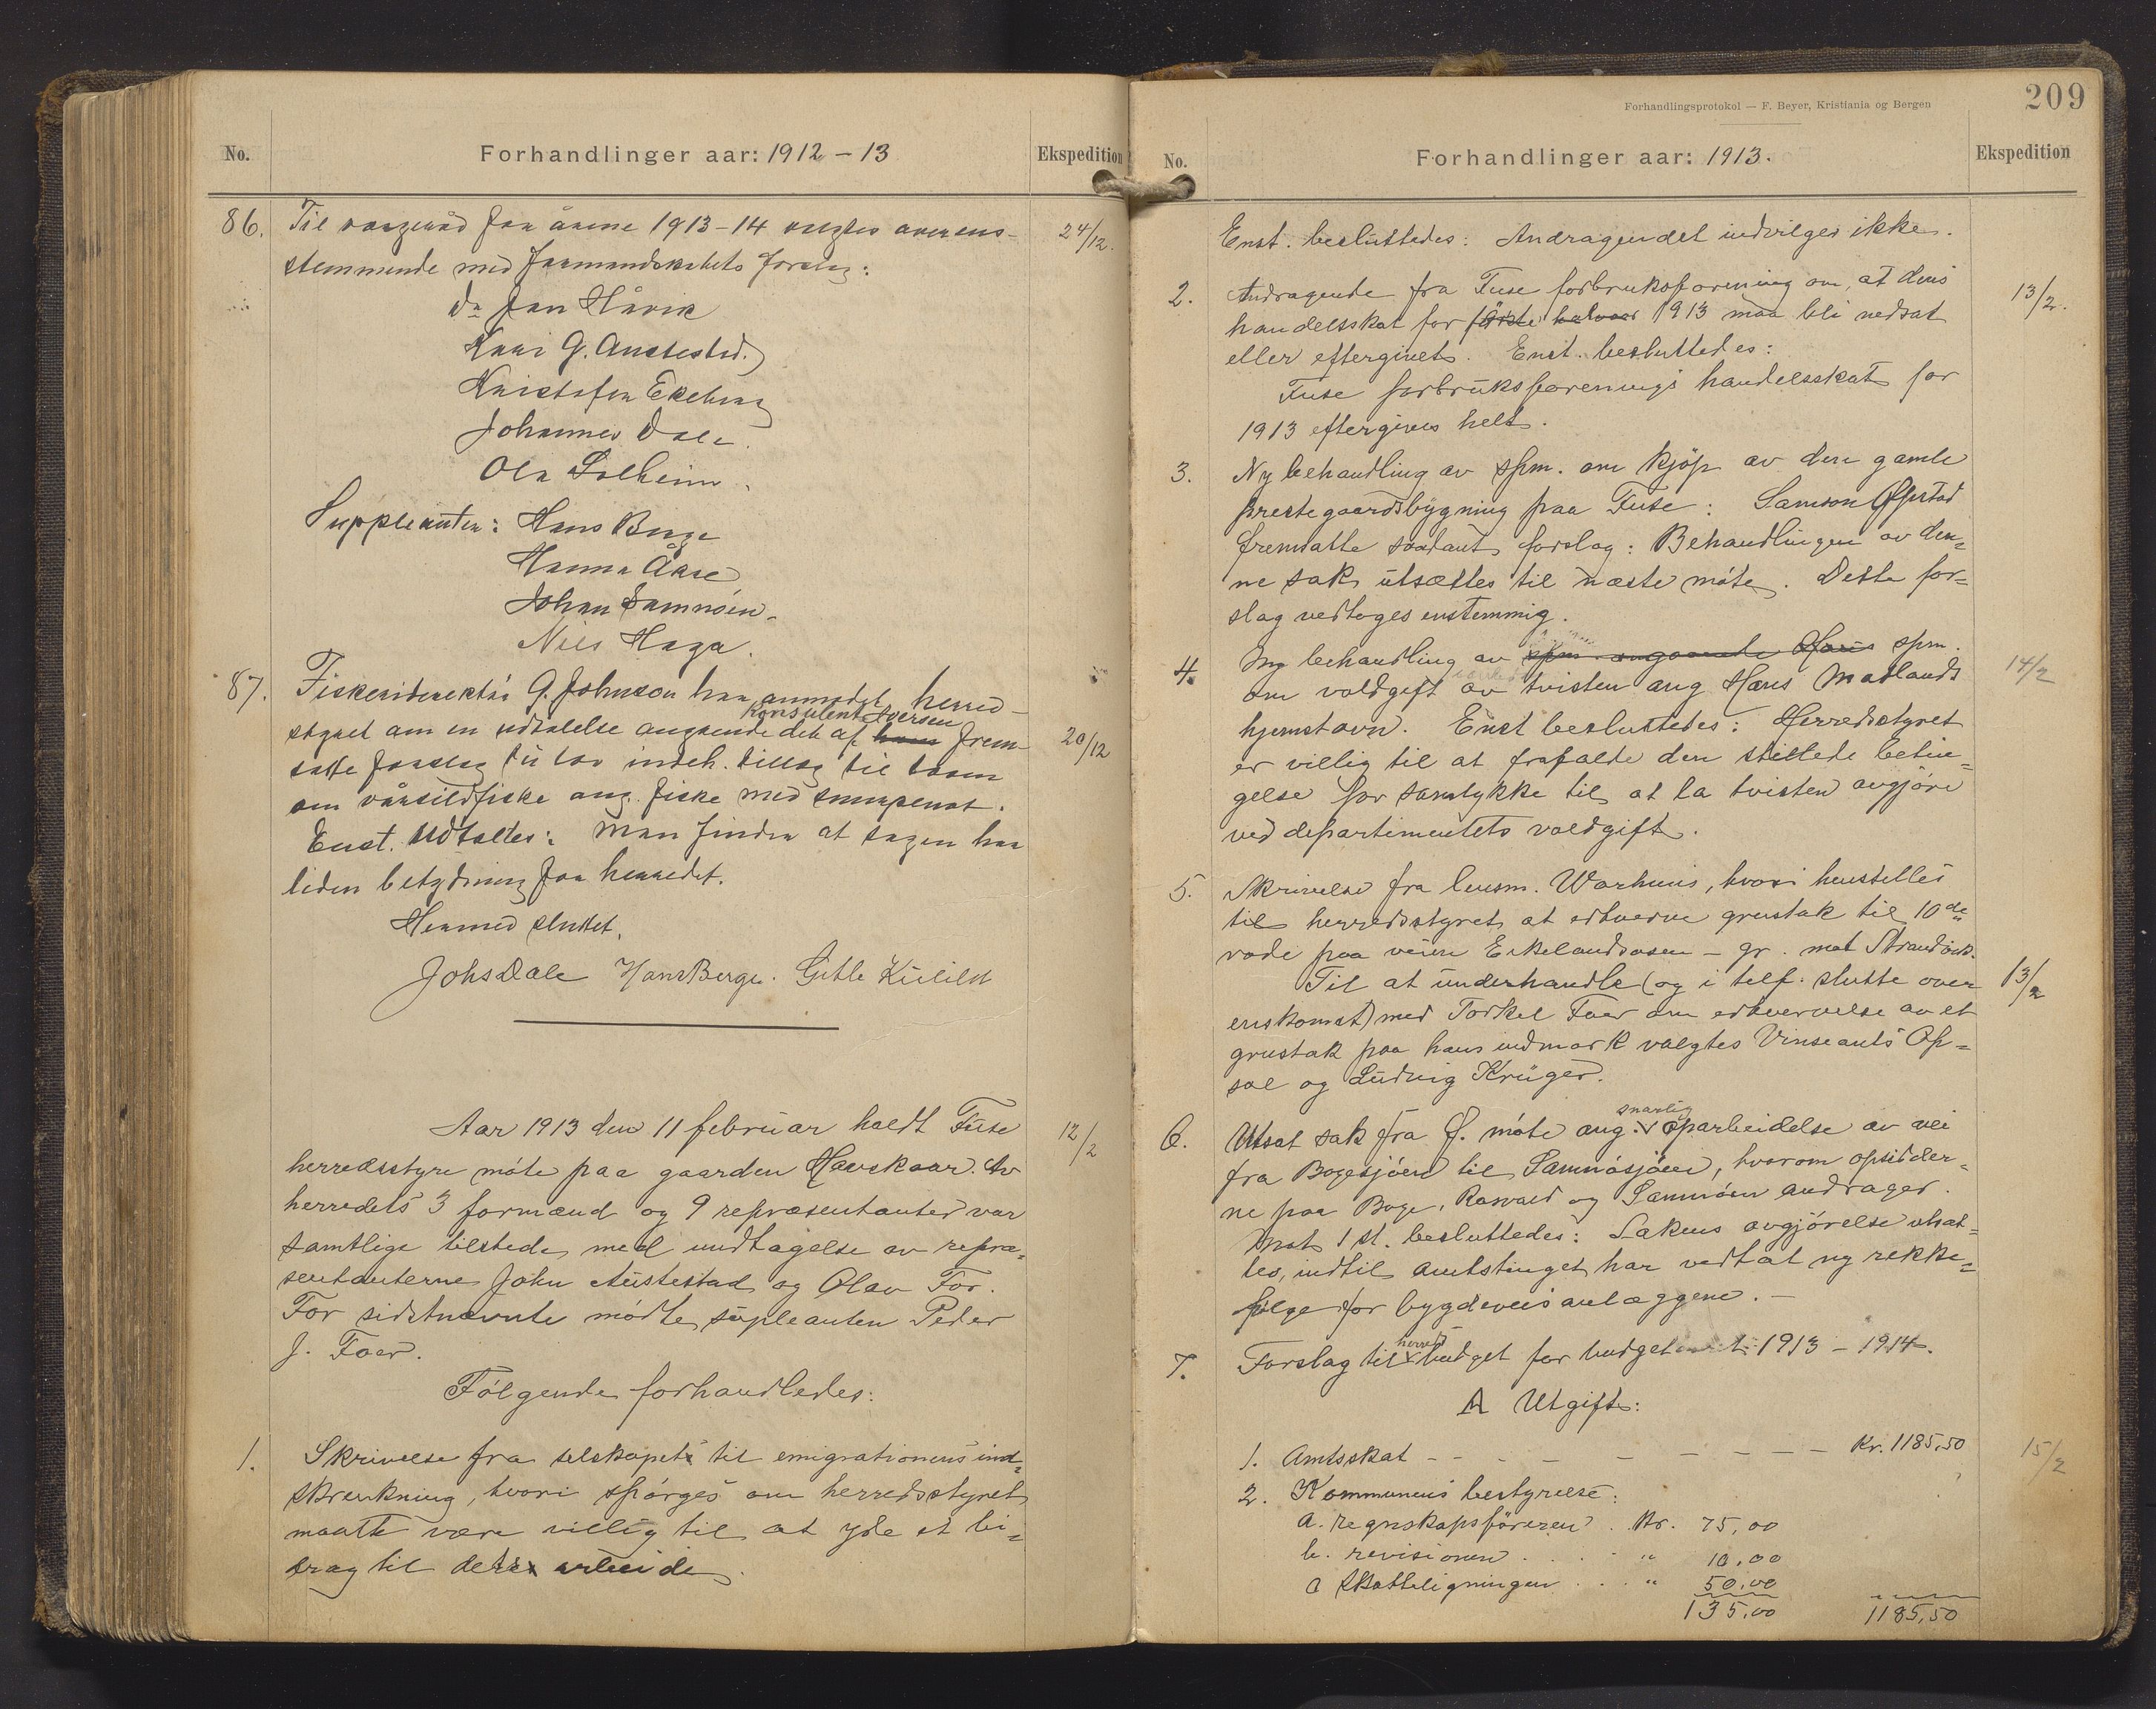 No. Forhandlinger aar: 1912 – 13 Ekspedition
86. Til vergeraad for årene 1913-14 valgtes overens- 24/12.
stemmende med formandskabets forslag:
Dr Jan Håvik
Knut G. Austestad.
Kristofer Ekeberg
Johannes Dale.
Ola Solheim.
Suppleanter: Hans Berge
Hanna Åkre
Johan Samnöen.
Nils Haga.
87. Fiskeridirektör G. Johnson har anmodet herred-
styret om en udtalelse angaaende det af hans konsulent Iversen frem- 20/12
satte forslag til lov indeh. tillæg til loven
om vårsildfiske ang. fiske med snurpenot.
Enst. udtaltes: Man finder at sagen har
liden betydning for herredet.
Hermed sluttet.
Johs Dale Hans Berge. Gitle
Aar 1913 den 11 februar holdt Fuse 12/2
herredsstyre möte paa gaarden Havskaar. Av
herredets 3 formænd og 9 repræsentanter var
samtlige tilstede med undtagelse av repræ=
sentanterne John Austestad og Olav For.
For sidstnævnte mödte supleanten Peder
J. Foer.
Fölgende forhandledes:
1. Skrivelse fra selskapet til emigrationens ind=
skrenkning, hvori spörges om herredsstyret
maatte være villig til at yde et bi=
drag til dets arbeide.
Forhandlingsprotokol — F. Beyer, Kristiania og Bergen 209
No. Forhandlinger aar: 1913. Ekspedition
Enst. besluttedes: Andragendet indvilges ikke.
2. Andragende fra Fuse forbruksforening om, at dens 13/2.
handelsskat for förste halvaar 1913 maa bli nedsat
eller eftergivet. Enst. besluttedes:
Fuse forbruksforenings handelsskat for
1913 eftergives helt.
3. Ny behandling av spm. om kjöp av den gamle
prestegaardsbygning paa Fuse: Samson Öpstad
fremsatte saadant forslag: Behandlingen av den=
ne sak utsættes til næste möte. Dette for=
slag vedtoges enstemmig.
4. Ny behandling av spm. angaaende Hans spm. 14/2
om voldgift av tvisten ang Hans Madlands
hjemstavn. Enst besluttedes: Herredsstyret
er villig til at frafalde den stillede betin=
gelse for samtykke til at la tvisten avgjöre
ved departementets voldgift.
5. Skrivelse fra lensm. Warhuus, hvori henstilles
til herredsstyret at erhverve grustak til 10de
rode paa veien Eikelandsosen – gr. mot Strandvik.
Til at underhandle (og i telf. slutte over 13/2
enskomst) med Torkel Foer om erhvervelse av et
grustak paa hans indmark valgtes Vinseants Op=
sal og Ludvig Krüger.
6. Utsat sak fra f. möte ang. snarlig oparbeidelse av vei
fra Bogesjöen til Samnösjöen, hvorom opsidder=
ne paa Boge, Rasvald og Samnöen andrager.
Mot 1 st. besluttedes: Sakens avgjörelse utsæt=
tes, indtil amtstinget har vedtat ny rekke=
fölge for bygdeveisanlæggene. –
7. Forslag til herreds budget for budget 1913 – 1914.
A Utgift:
1. Amtsskat - - - - - - - - - Kr. 1185,50 15/2
2. Kommunens bestyrelse:
a. regnskapsföreren . Kr. 75,00
b. revisionen . . . . " 10,00
c skatteligningen . . . " 50,00
135,00 1185,50